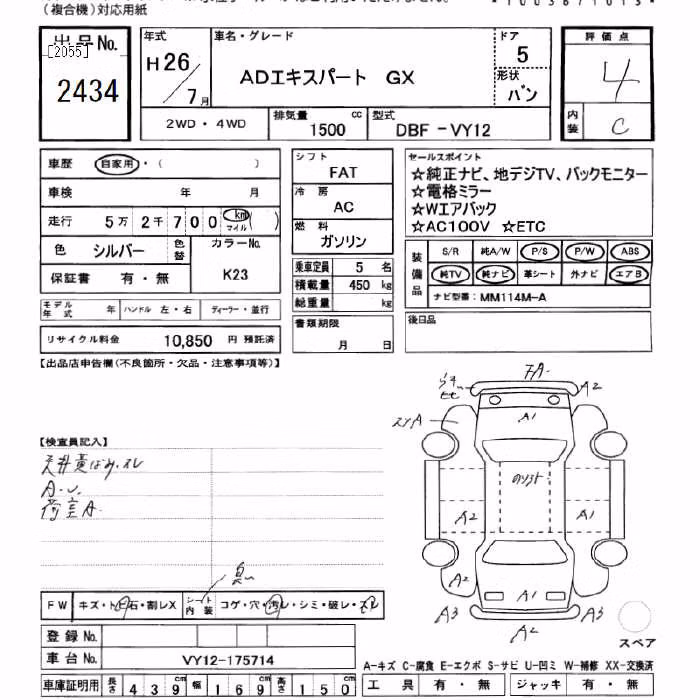 (複合機)対応用紙
出品No.
[2055]
2434
年式
H26/7月
車名・グレード
ADエキスパート GX
ドア
5
形状
バン
評価点
4
内装
C
2WD・4WD
排気量 1500 cc
型式 DBF-VY12
車歴 自家用・( )
車検 年 月
走行 5万2千700 km マイル ( )
色 シルバー
色替
カラーNo. K23
保証書 有・無
モデル年式 年
ハンドル 左・右
ディーラー・並行
リサイクル料金 10,850 円 預託済
シフト
FAT
冷房
AC
燃料
ガソリン
乗車定員 5 名
積載量 450 kg
総重量 kg
書類期限
月 日
セールスポイント
☆純正ナビ、地デジTV、バックモニター
☆電格ミラー
☆Wエアバック
☆AC100V ☆ETC
装備品
S/R 純A/W P/S P/W ABS
純TV 純ナビ 革シート 外ナビ エアB
ナビ型番: MM114M-A
後日品
【出品店申告欄(不良箇所・欠品・注意事項等)】
【検査員記入】
A.U.
荷室A.
FA.
A2
A1
A2
A1
A2
A1
A1
A3
A2
A3
スペア
FW キズ・ト石・割レX
シート内装 コゲ・穴・汚レ・シミ・破レ・スレ
登録No.
車台No. VY12-175714
車庫証明用 長さ 439cm 幅 169cm 高さ 150cm
A-キズ C-腐食 E-エクボ S-サビ U-凹ミ W-補修 XX-交換済
工具 有・無 ジャッキ 有・無